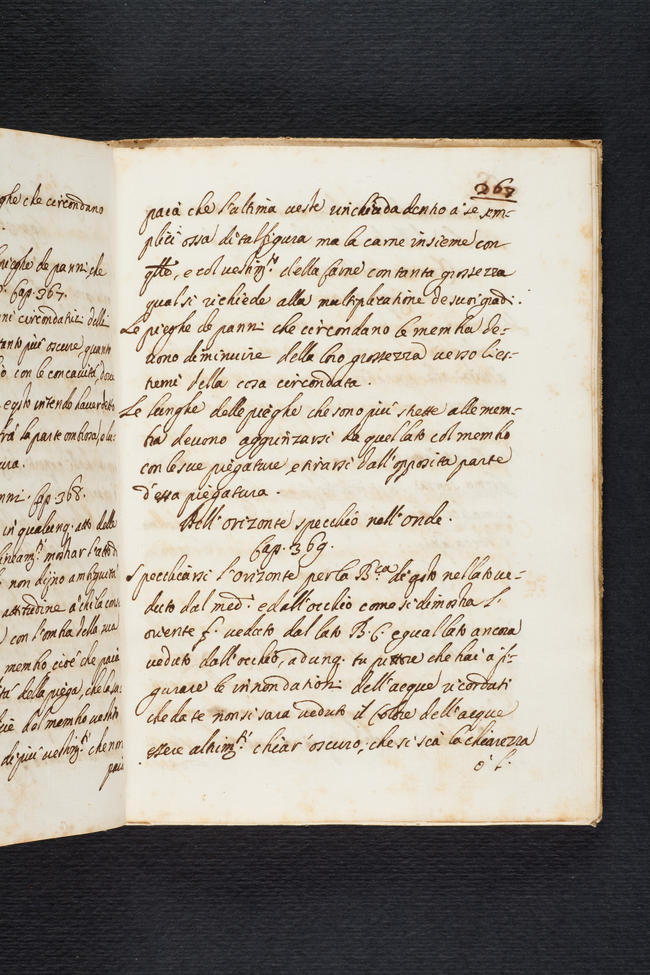 ghe che circondano
pieghe de panni, che
Cap. 367.
ni circondatrici delli
tanto più oscure, quanto
con le concavità, dove
e qsto intendo haver detto
frà la parte ombrosa, e lu-
nni. Cap. 368.
in qualunq. atto della
mostrar l'attitud
non dijno ambiguità
attitudine à chi la cons
con l'ombra della sua
membro cioè che paia
della piega, che la su
del membro vestito
di più vestimti. che non
paia
268
paia che l'ultima veste rinchiuda dentro à se sem-
plici ossa di tal figura ma la carne insieme con
qlle, e col vestimto. della carne con tanta grossezza
qual si richiede alla multiplicatine de suoi gradi.
Le pieghe de panni che circondano le membra de-
vono diminuire della loro grossezza verso l'es-
tremi della cosa circondata.
Le lunghe delle pieghe che sono più strette alle mem-
bra devono aggrinzarsi da quel lato col membro
con le sue piegature, e tirarsi dall'opposita parte
d'essa piegatura.
Dell'orizonte specchio nell'onde.
Cap. 369.
Specchiarsi l'orizonte per la 6.ta di qsto nel lato ve-
duto dal med. e dall'occhio como si dimostra l'
orizonte f. veduto dal lato B. C. e qual lato ancora
veduto dall'occhio, adunq. tu pittore che hai à fi-
gurare le innondationi dell'acque ricordati
che da te non si sara veduto il colore dell'acque
essere altrimti. chiar' oscuro, che si sia la chiarezza
ò l'